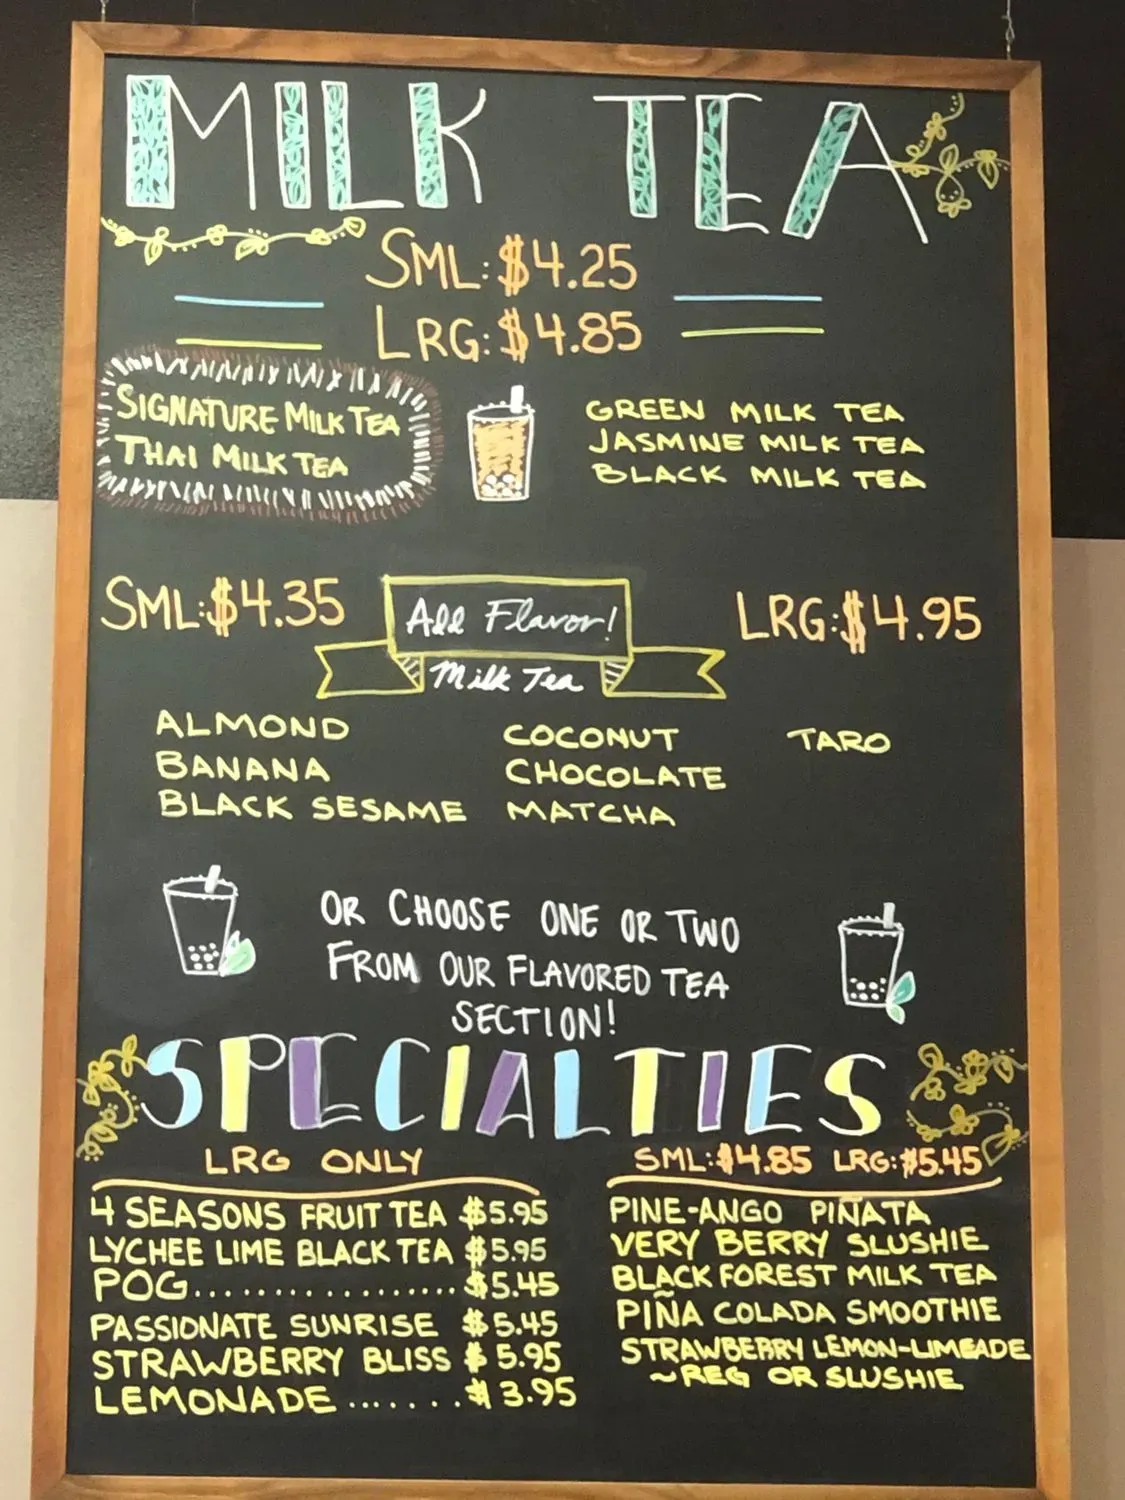 MILK TEA
SML: $4.25
LRG: $4.85
SIGNATURE MILK TEA
THAI MILK TEA
GREEN MILK TEA
JASMINE MILK TEA
BLACK MILK TEA
SML: $4.35
All Flavor!
Milk Tea
LRG: $4.95
ALMOND
BANANA
BLACK SESAME
COCONUT
CHOCOLATE
MATCHA
TARO
OR CHOOSE ONE OR TWO
FROM OUR FLAVORED TEA
SECTION!
SPECIALTIES
LRG ONLY
4 SEASONS FRUIT TEA $5.95
LYCHEE LIME BLACK TEA $5.95
POG.................. $5.45
PASSIONATE SUNRISE $5.45
STRAWBERRY BLISS $5.95
LEMONADE ....... $3.95
SML: $4.85 LRG: $5.45
PINE-ANGO PIÑATA
VERY BERRY SLUSHIE
BLACK FOREST MILK TEA
PIÑA COLADA SMOOTHIE
STRAWBERRY LEMON-LIMEADE
~REG OR SLUSHIE